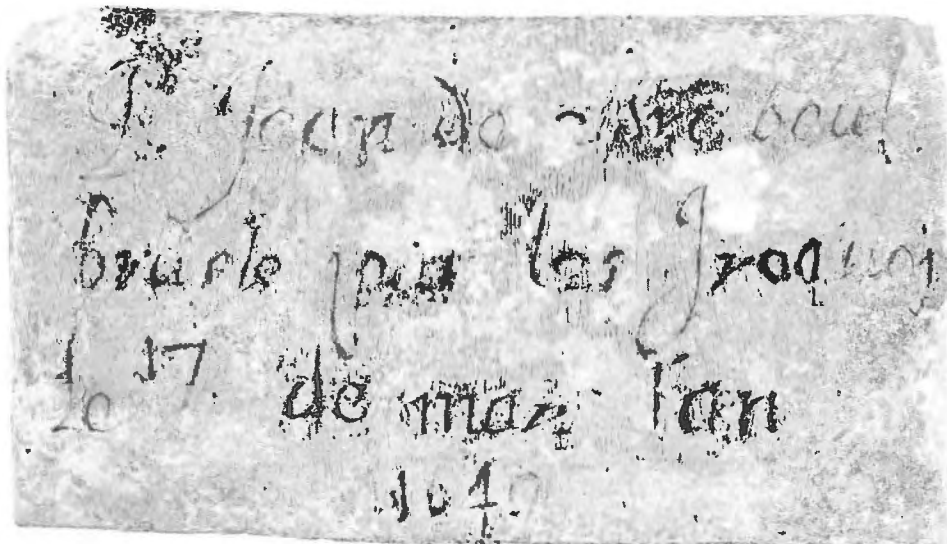 P. Jean de Brebeuf
brusle par les Iroquois
le 17 de mars l'an
1649